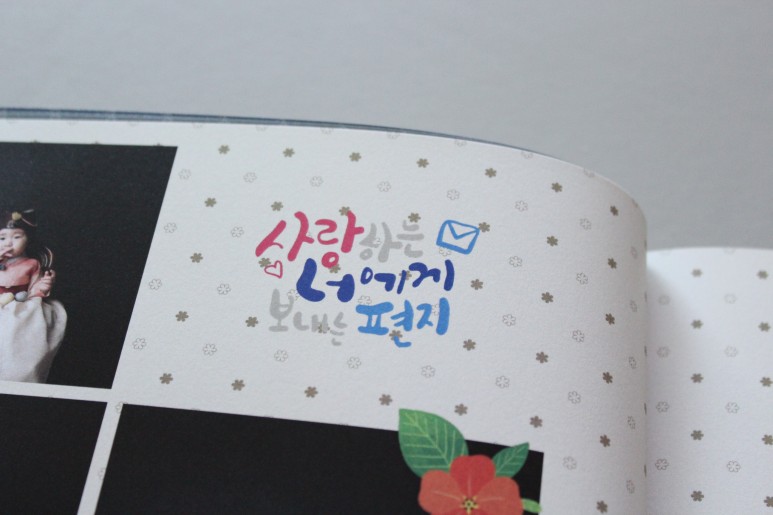 사랑하는
너에게
보내는 편지